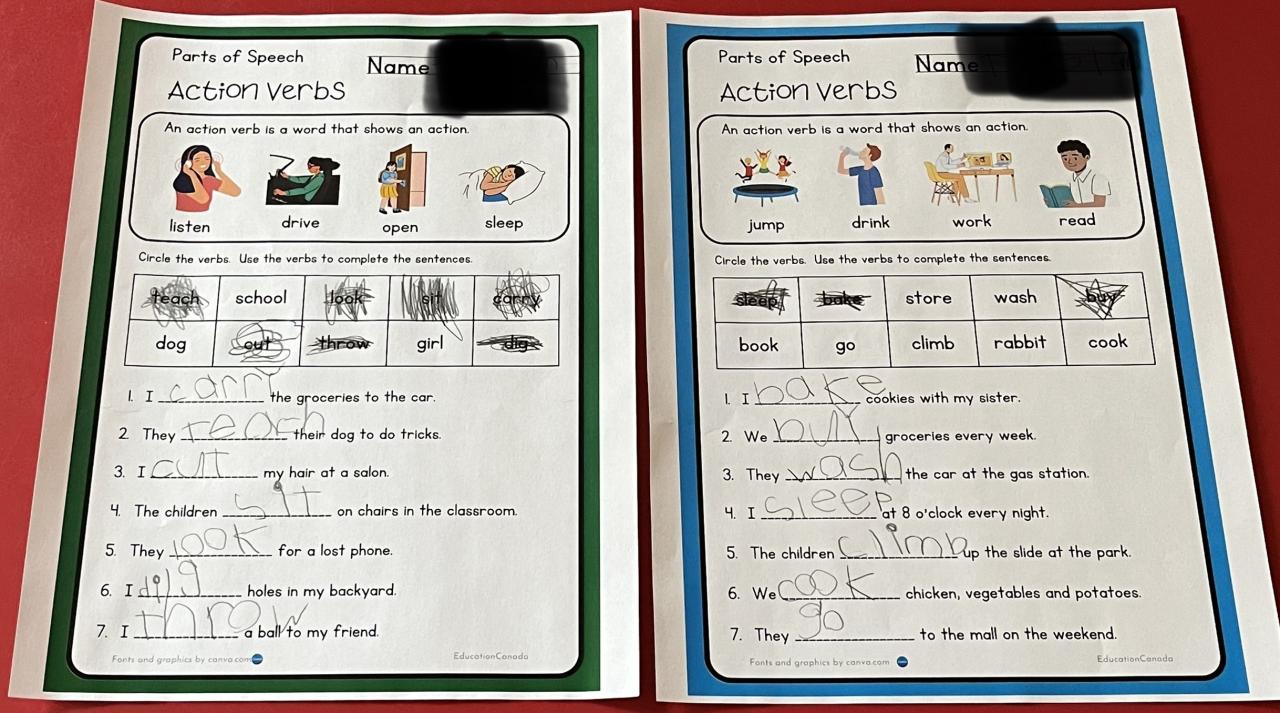 Parts of Speech
Name
Action Verbs
An action verb is a word that shows an action.
listen drive open sleep
Circle the verbs. Use the verbs to complete the sentences.
teach school look sit carry
dog cut throw girl dig
1. I carry the groceries to the car.
2. They teach their dog to do tricks.
3. I cut my hair at a salon.
4. The children sit on chairs in the classroom.
5. They look for a lost phone.
6. I dig holes in my backyard.
7. I throw a ball to my friend.
Fonts and graphics by canva.com
EducationCanada
Parts of Speech
Name
Action Verbs
An action verb is a word that shows an action.
jump drink work read
Circle the verbs. Use the verbs to complete the sentences.
sleep bake store wash buy
book go climb rabbit cook
1. I bake cookies with my sister.
2. We buy groceries every week.
3. They wash the car at the gas station.
4. I sleep at 8 o'clock every night.
5. The children climb up the slide at the park.
6. We cook chicken, vegetables and potatoes.
7. They go to the mall on the weekend.
Fonts and graphics by canva.com
EducationCanada